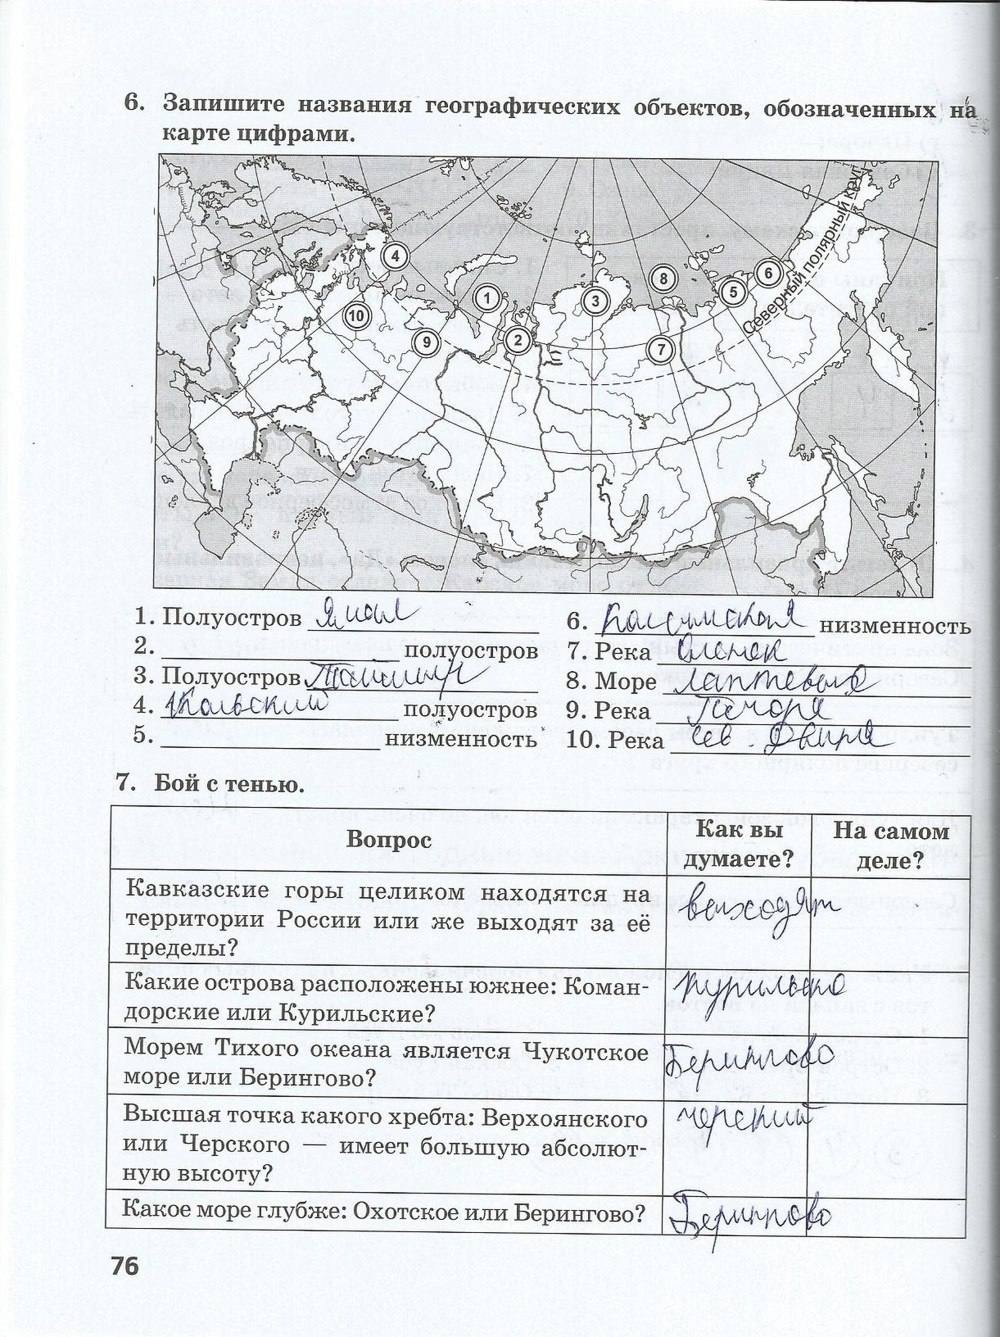 6. Запишите названия географических объектов, обозначенных на
карте цифрами.
Северный полярный круг
4
1
3
8
5
6
10
9
2
7
1. Полуостров Ямал
2. ____ полуостров
3. Полуостров Таймыр
4. Кольский полуостров
5. ____ низменность
6. низменность
7. Река Оленек
8. Море Лаптевых
9. Река Печора
10. Река Сев. Двина
7. Бой с тенью.
Вопрос
Как вы
думаете?
На самом
деле?
Кавказские горы целиком находятся на
территории России или же выходят за её
пределы?
выходят
Какие острова расположены южнее: Коман-
дорские или Курильские?
Морем Тихого океана является Чукотское
море или Берингово?
Берингово
Высшая точка какого хребта: Верхоянского
или Черского — имеет большую абсолют-
ную высоту?
черский
Какое море глубже: Охотское или Берингово?
Берингово
76